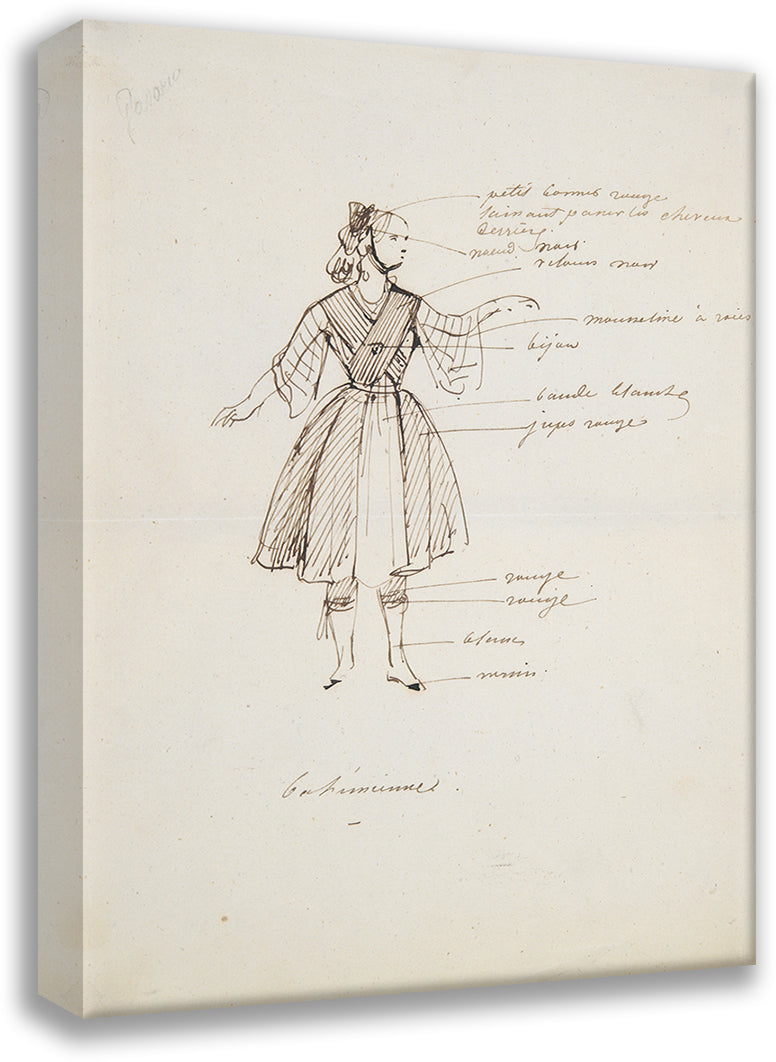 petit bonnet rouge
laissant passer les cheveux
derrière.
noeud noir
velours noir
mousseline à raies
bijou
bande blanche
jupes rouges
rouge
rouge
blanc
noir
bohémienne.